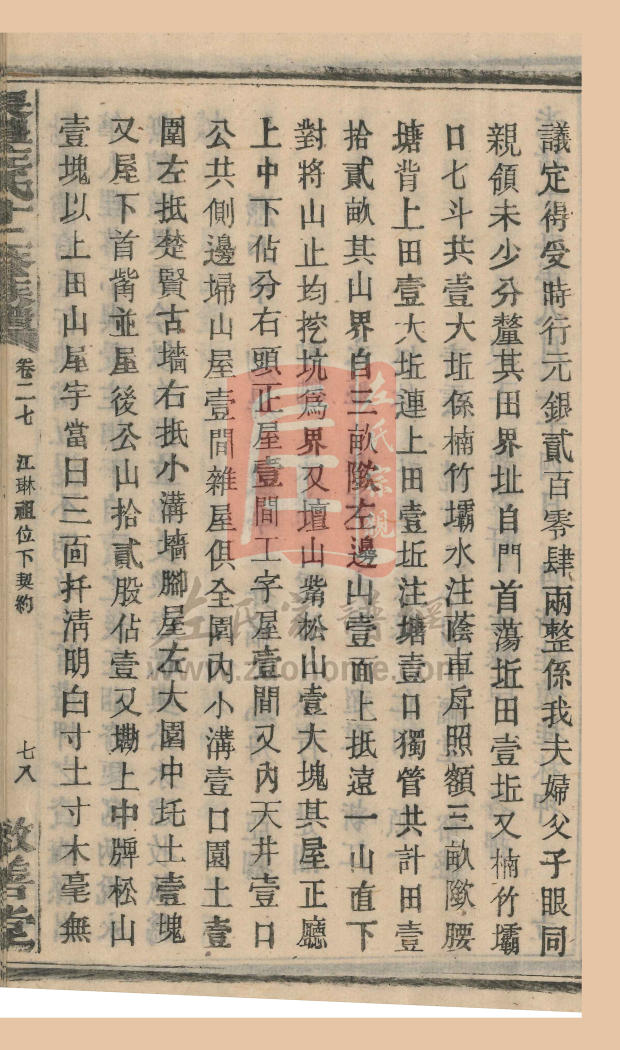 議定得受時行元銀貳百零肆兩整係我夫婦父子眼同
親領未少分釐其田界址自門首蕩坵田壹坵又楠竹壩
口七斗共壹大坵係楠竹壩水注蔭車戽照額三畝墘腰
塘背上田壹大坵連上田壹坵注塘壹口獨管共計田壹
拾貳畝其山界自三畝墘左邊山壹面上抵遠一山直下
對將山止均挖坑爲界又壇山嘴松山壹大塊其屋正廳
上中下佔分右頭正屋壹間工字屋壹間又內天井壹口
公共側邊埽山屋壹間雜屋俱全園內小溝壹口園土壹
圍左抵楚賢古墻右抵小溝墻腳屋左大園中圫土壹塊
又屋下首嘴並屋後公山拾貳股佔壹又塅上中牌松山
壹塊以上田山屋宇當日三面扦清明白寸土寸木毫無
左氏十一修族譜
卷二七 江琳祖位下契約
七八
敦善堂
左氏宗親
左氏家譜網
www.zuohome.com